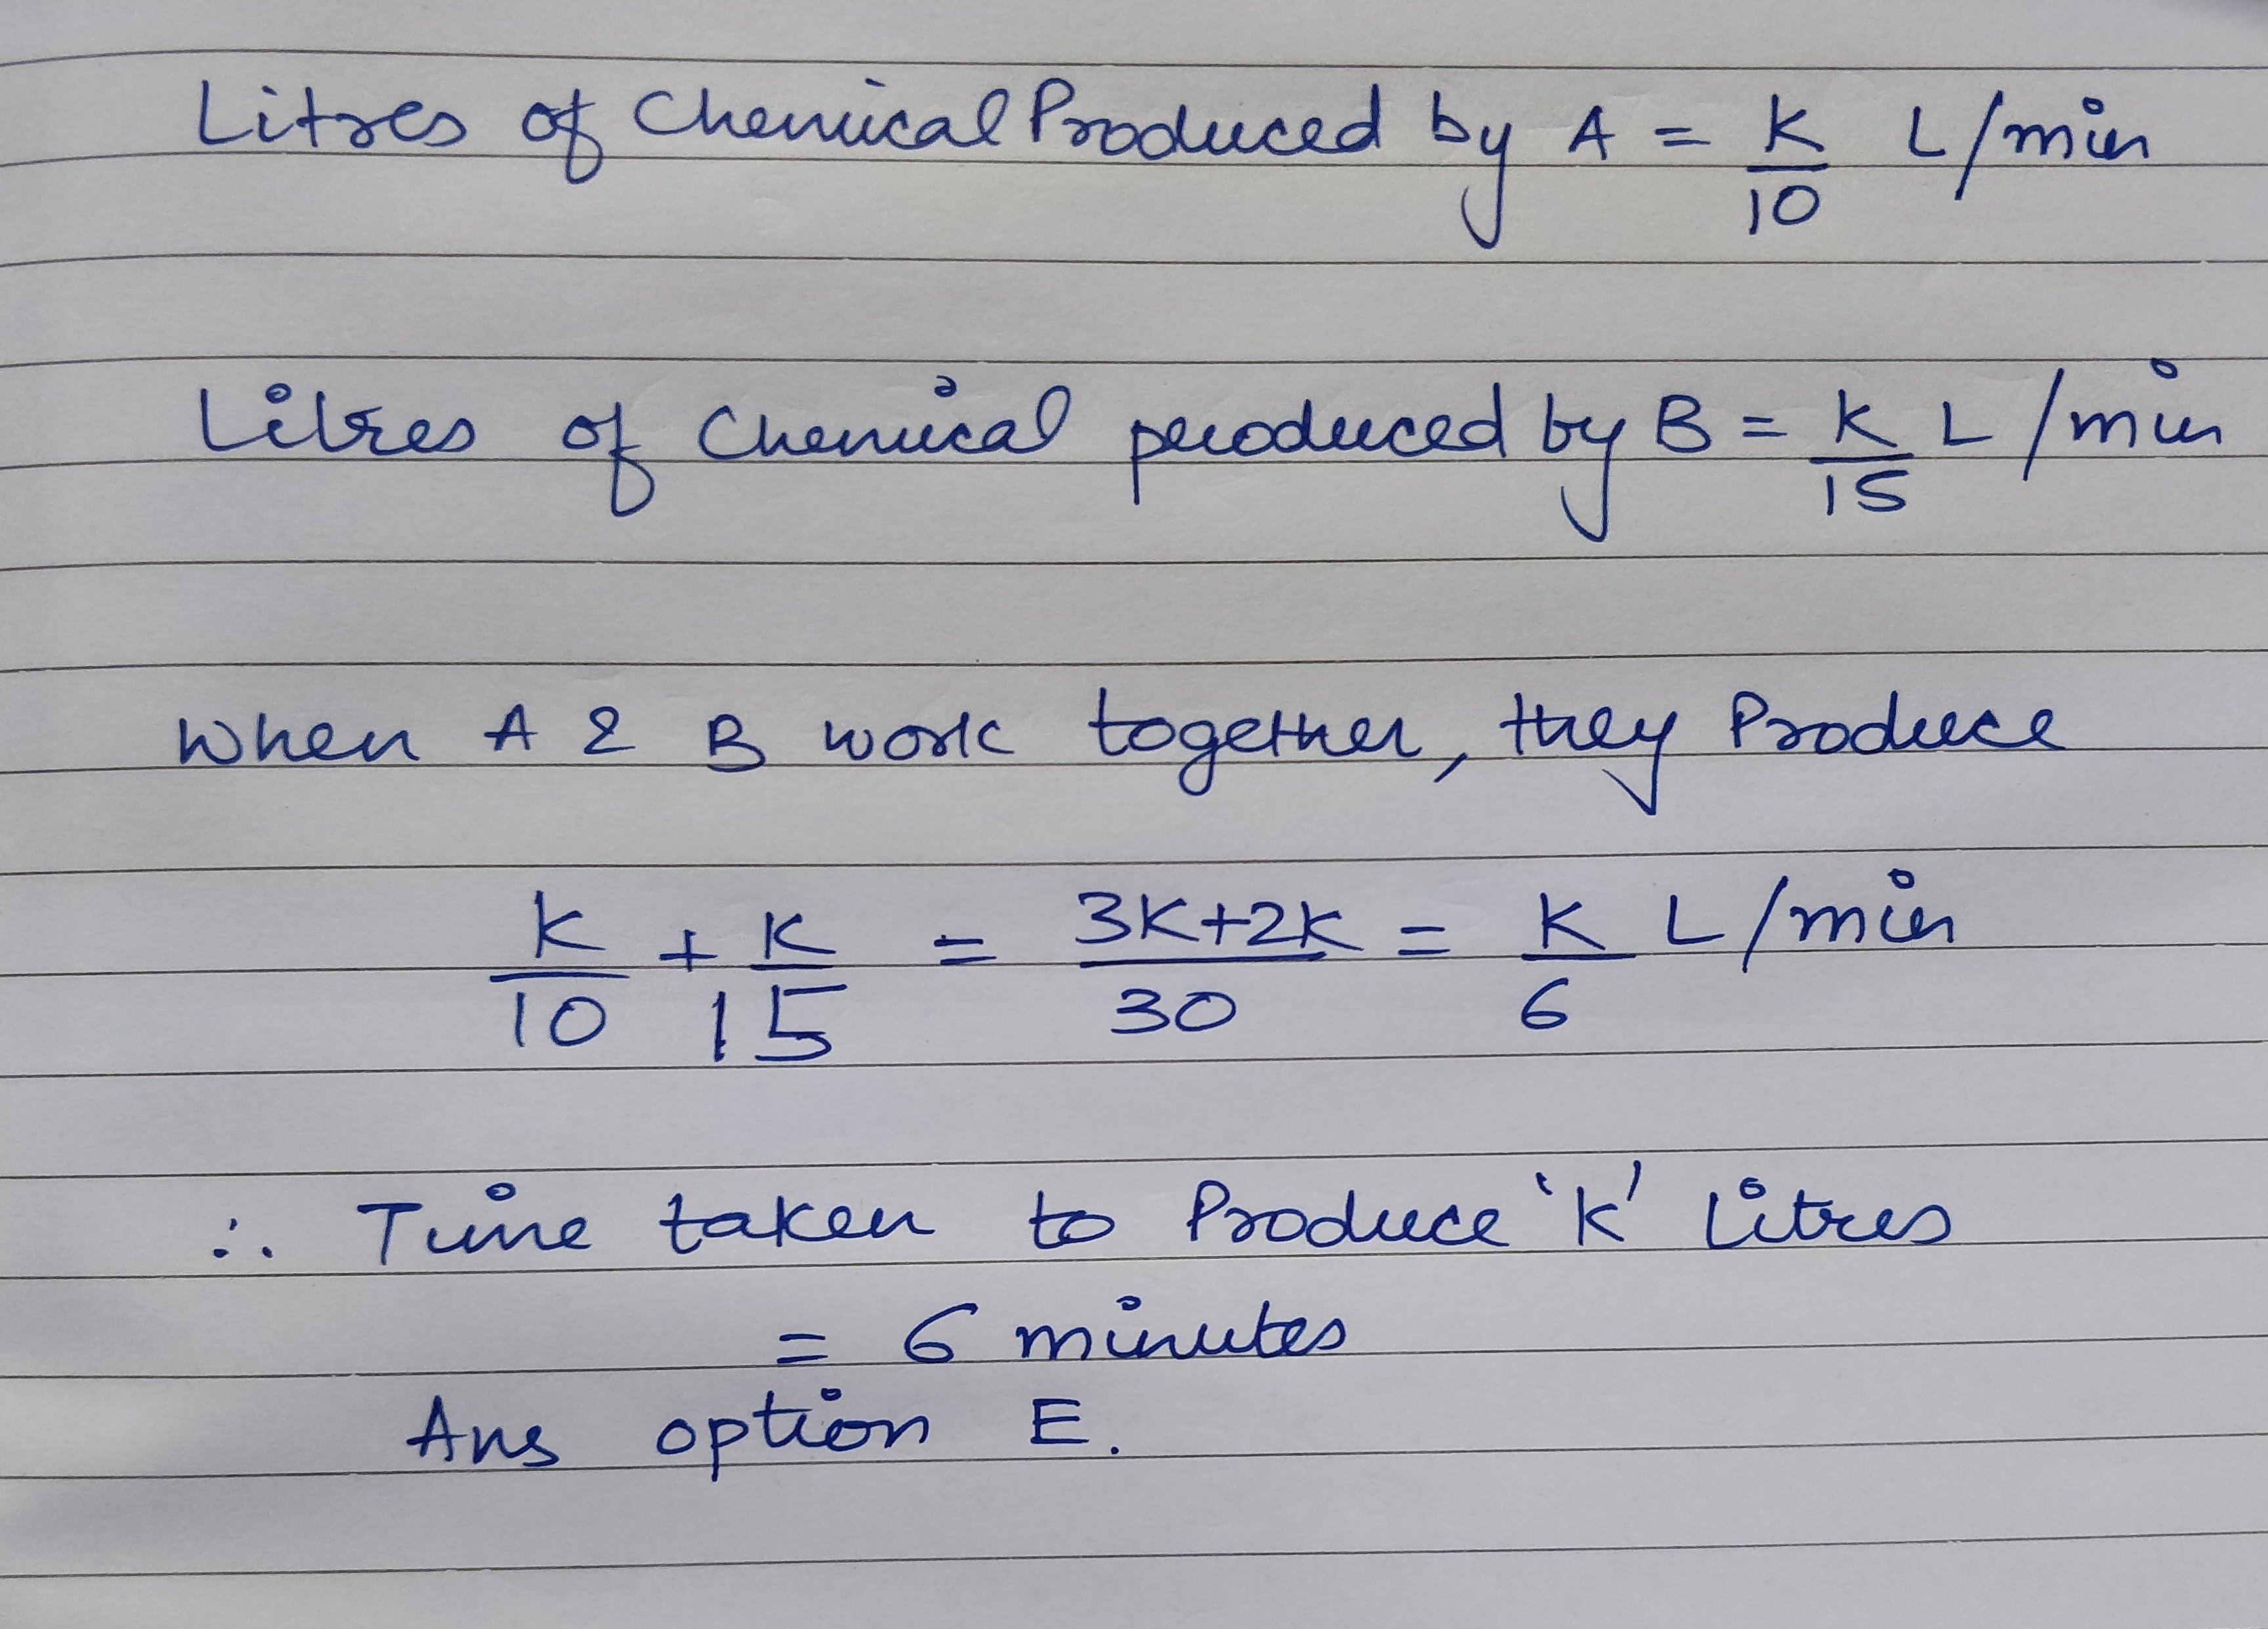 Litres of Chemical Produced by A = K/10 L/min
Litres of Chemical produced by B = K/15 L/min
When A & B work together, they Produce
K/10 + K/15 = 3K+2K/30 = K/6 L/min
∴ Time taken to Produce 'K' Litres
= 6 minutes
Ans option E.